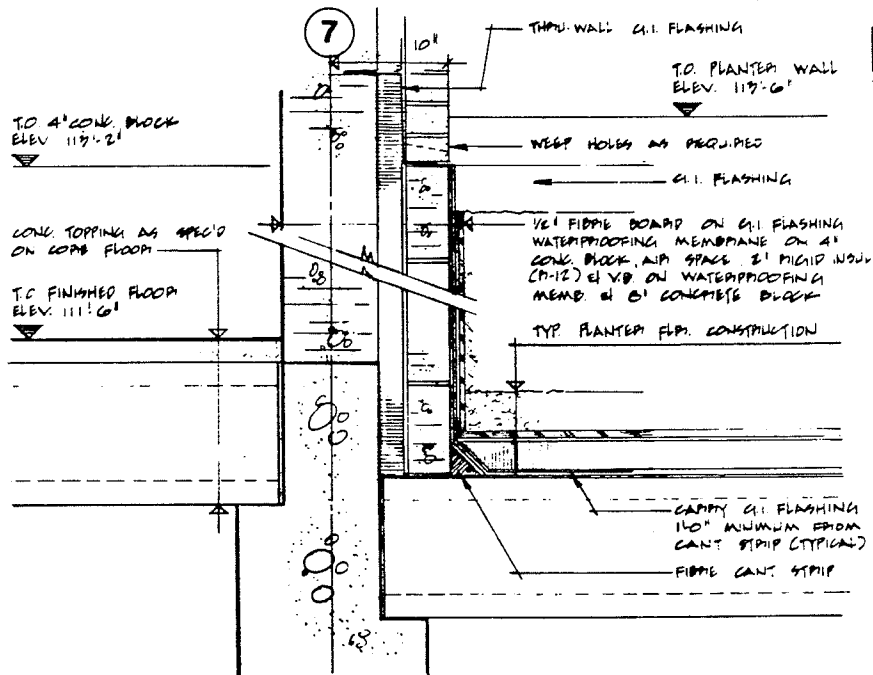 7
10"
THRU-WALL G.I. FLASHING
T.O. PLANTER WALL
ELEV. 113'-6"
T.O. 4" CONC. BLOCK
ELEV 113'-2"
WEEP HOLES AS REQUIRED
G.I. FLASHING
CONC. TOPPING AS SPEC'D
ON CORE FLOOR
1/2" FIBRE BOARD ON G.I. FLASHING
WATERPROOFING MEMBRANE ON 4"
CONC. BLOCK, AIR SPACE, 2" RIGID INSUL
(R-12) & V.B. ON WATERPROOFING
MEMB. & 8" CONCRETE BLOCK
FINISHED FLOOR
ELEV. 111'-6"
TYP. PLANTER FLR. CONSTRUCTION
CARRY G.I. FLASHING
1'-0" MINIMUM FROM
CANT STRIP (TYPICAL)
FIBRE CANT STRIP